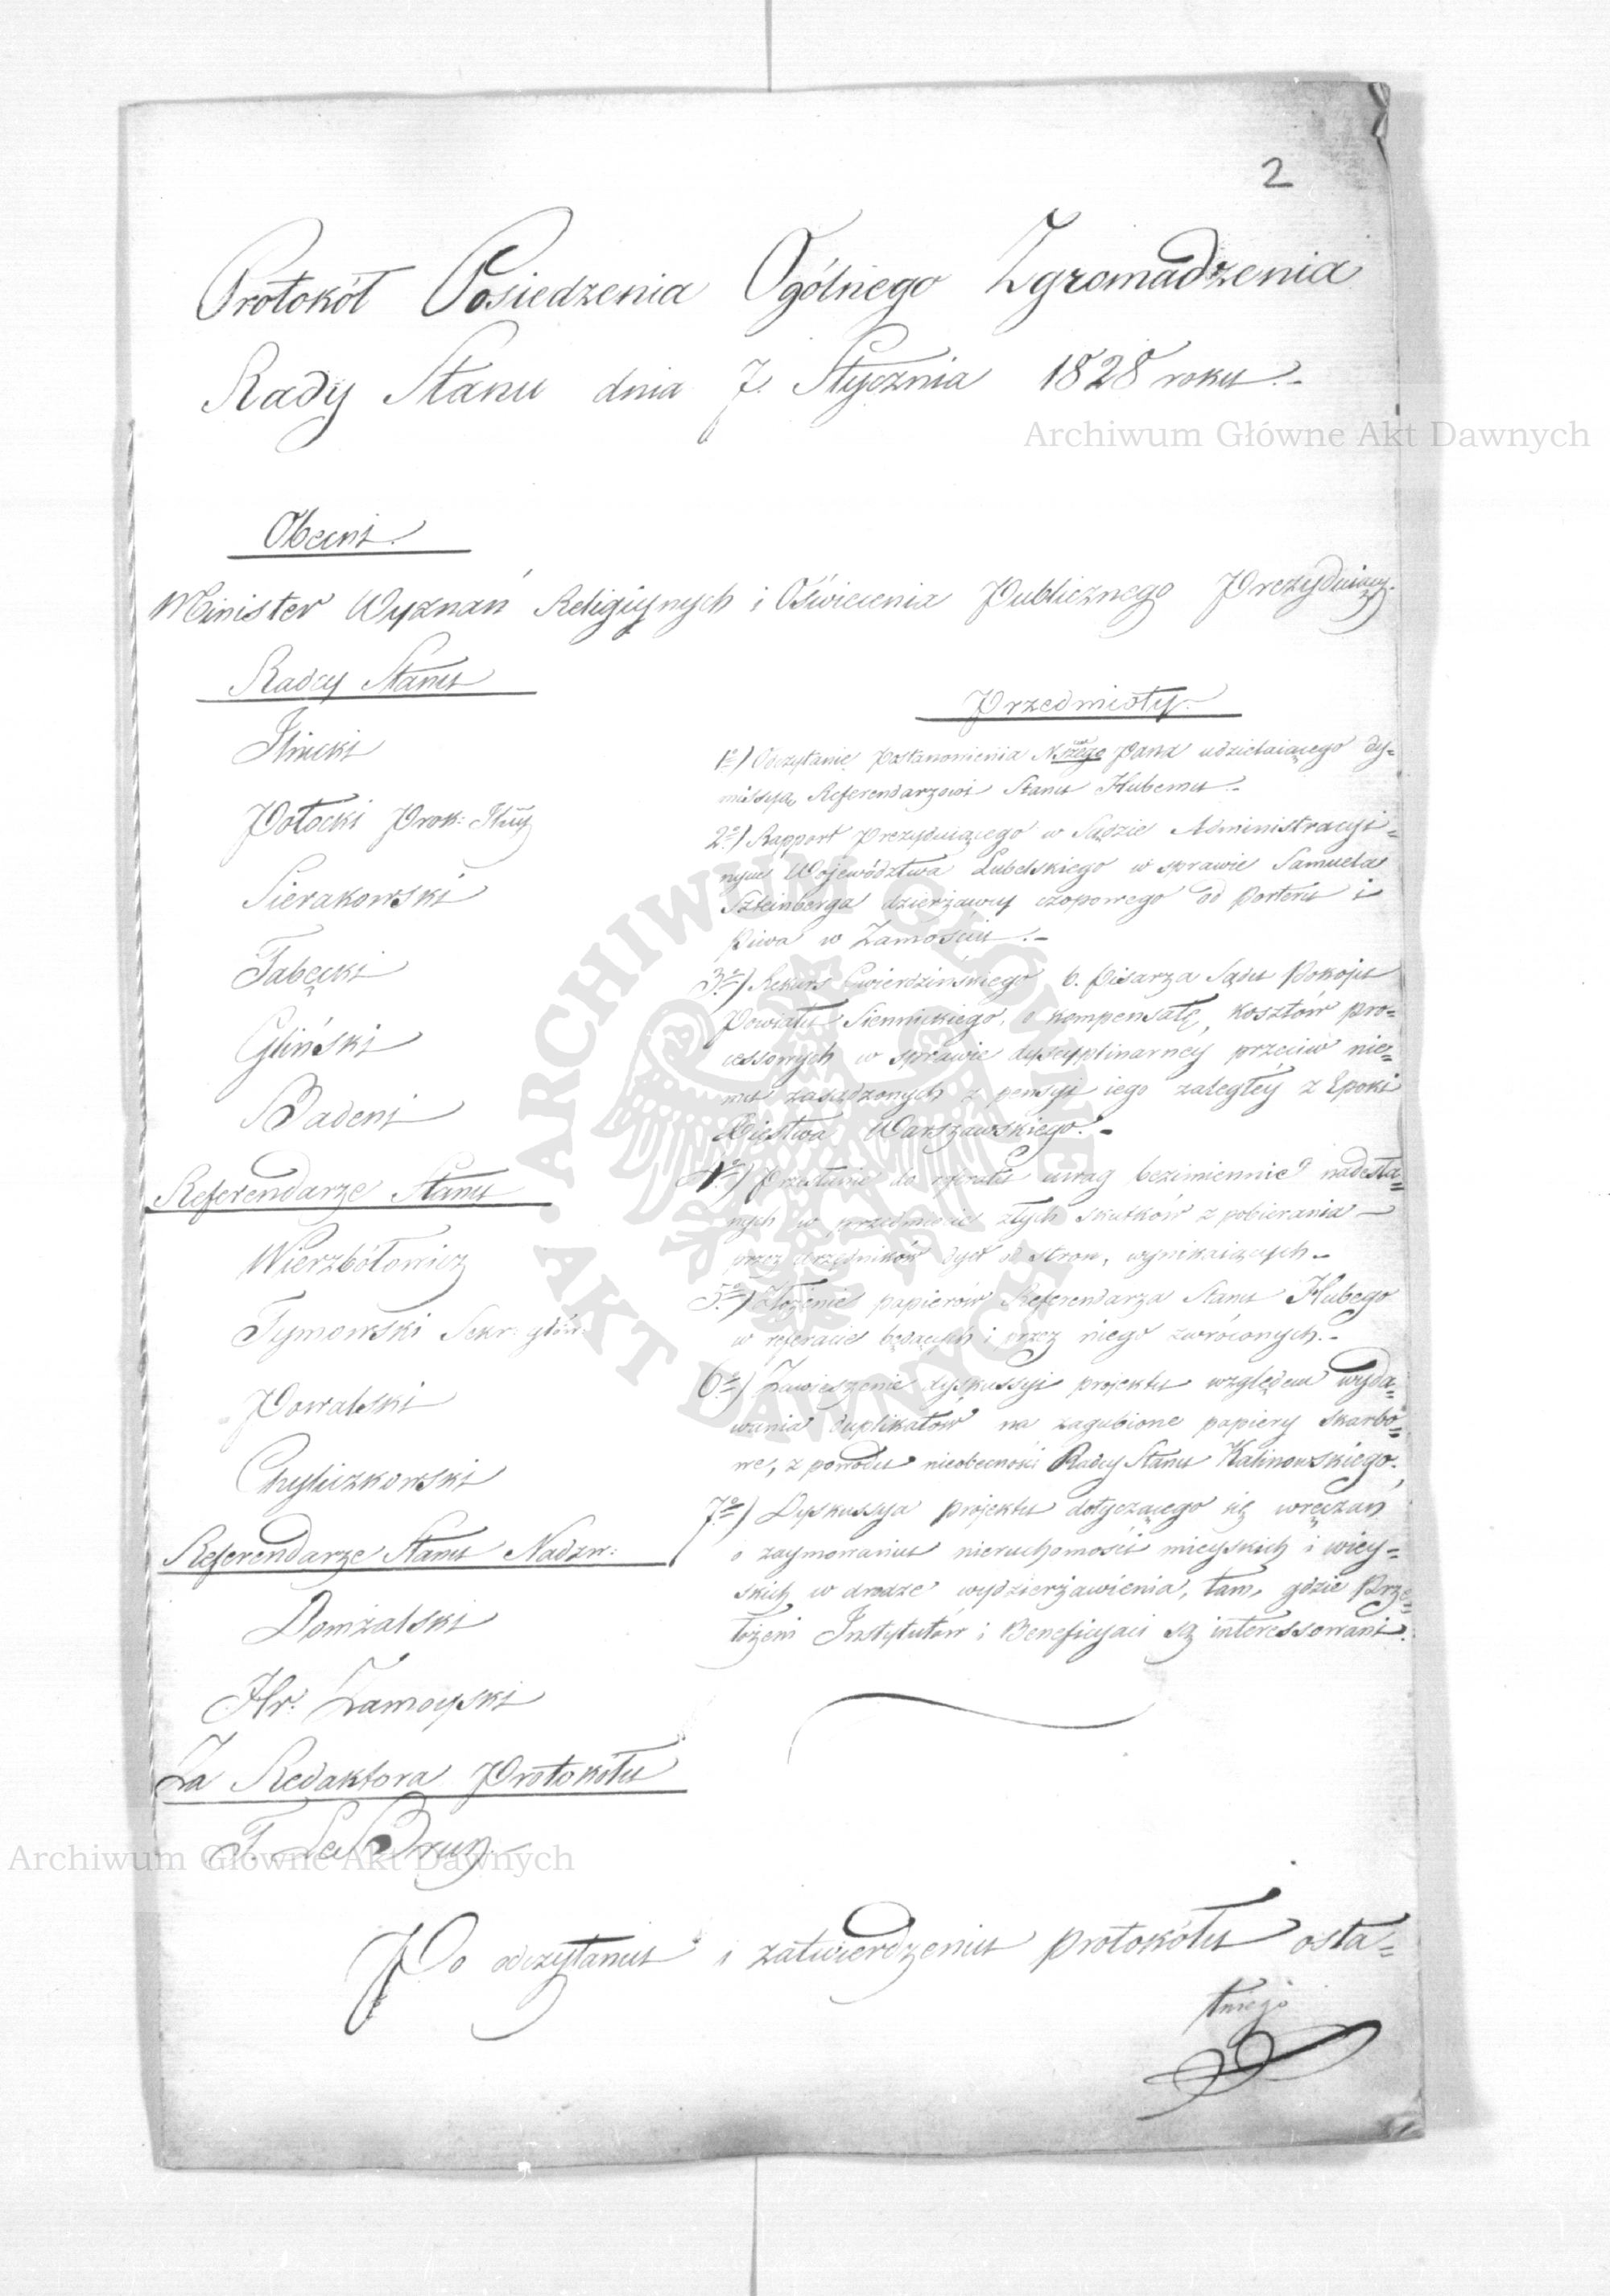 2
Protokół Posiedzenia Ogólnego Zgromadzenia
Rady Stanu dnia 7. Stycznia 1828 roku.-
Archiwum Główne Akt Dawnych
Obecni.
Minister Wyznań Religijnych i Oświecenia Publicznego Prezyduiący.
Radcy Stanu
Potocki Prok:
Sierakowski
Tabęcki
Gliński
Badeni
Referendarze Stanu
Wierzbołowicz
Tymowski Sekr: głów:
Powalski
Chyliczkowski
Referendarze Stanu Nadzw:
Domżalski
Hr. Zamoyski
Za Redaktora Protokołu
F. Le Brun.-
Przedmioty.-
1º) Odczytanie Postanowienia N. Pana udzielaiącego dy=
missyą Referendarzowi Stanu Hubemu.-
2º) Rapport Prezyduiącego w Sądzie Administracyi=
nym Województwa Lubelskiego w sprawie Samuela
Szteinberga dzierżawcy czopowego od Porteru i
Piwa w Zamościu.-
3º) Rekurs Cwierdzińskiego b. Pisarza Sądu Pokoju
Powiatu Siennickiego, o kompensatę kosztów pro=
cessowych w sprawie dyscyplinarney przeciw nie=
mu zasądzonych z pensyi iego zaległéy z Epoki
Xięstwa Warszawskiego.-
4º) Przesłanie do referatu uwag bezimiennie nadesła=
nych w przedmiocie złych skutków z pobierania
przez urzędników dyet od stron, wynikaiących.-
5º) Złożenie papierów Referendarza Stanu Hubego
w referacie będących i przez niego zwróconych.-
6º) Zawieszenie dyskussyi projektu względem wyda=
wania duplikatów na zagubione papiery skarbo=
we, z powodu nieobecności Radcy Stanu Kalinowskiego.
7º) Dyskussya projektu dotyczącego się wręczań
o zaymowaniu nieruchomości mieyskich i wiey=
skich w drodze wydzierżawienia, tam, gdzie Prze=
łożeni Instytutów i Beneficyaci są interessowani.
ARCHIWUM GŁÓWNE · AKT DAWNYCH ·
Archiwum Główne Akt Dawnych
Po odczytaniu i zatwierdzeniu protokółu osta=
tniego